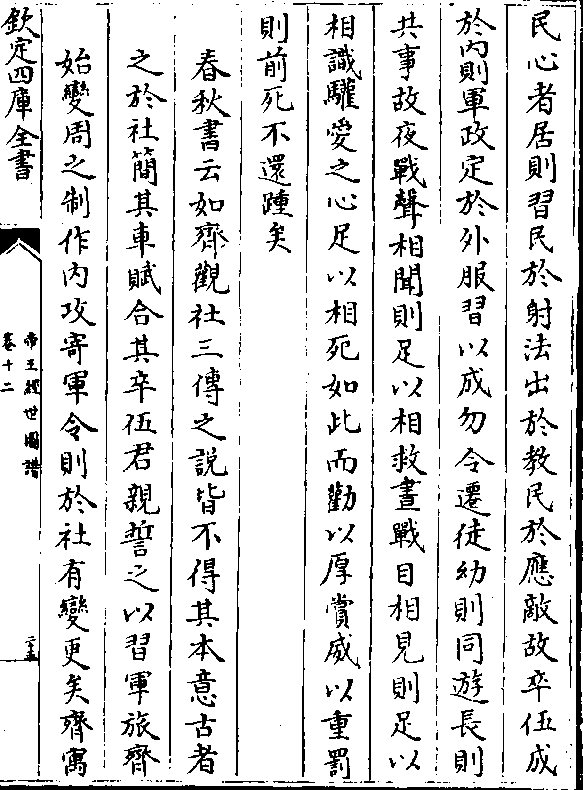 民心者居則習民於射法出於教民於應敵故卒伍成
於内則軍政定於外服習以成勿令遷徙幼則同遊長則
共事故夜戰聲相聞則足以相救晝戰目相見則足以
相識驩愛之心足以相死如此而勸以厚賞威以重罰
則前死不還踵矣
春秋書云如齊觀社三傳之説皆不得其本意古者
之於社簡其車賦合其卒伍君親誓之以習軍旅齊
始變周之制作内攻寄軍令則於社有變更矣齊寓
欽定四庫全書
帝王經世圖譜
卷十二
二十五